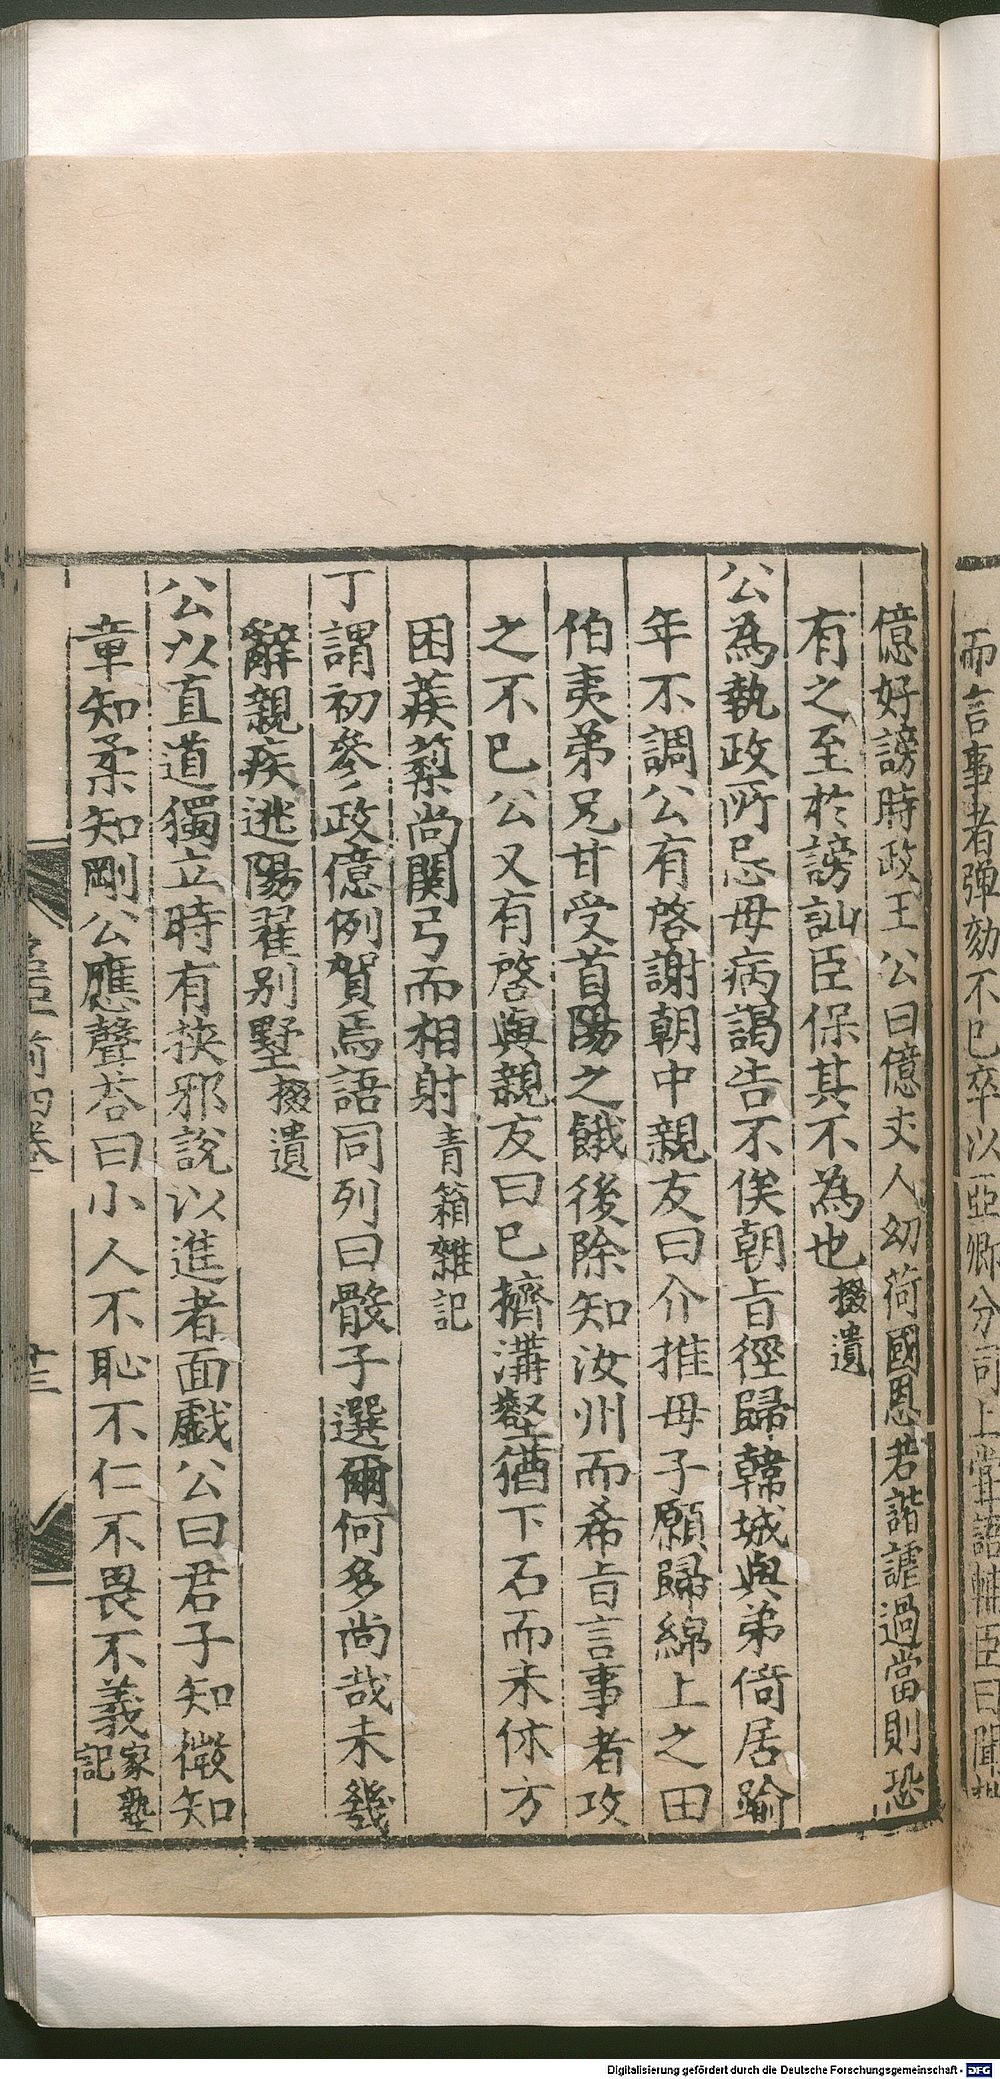 而言事者彈劾不已卒以亞卿分司上嘗語輔臣曰聞
億好謗時政王公曰億文人幼荷國恩若諧謔過當則恐
有之至於謗訕臣保其不為也掇遺
公為執政所忌母病謁告不俟朝旨徑歸韓城與弟倚居踰
年不調公有啓謝朝中親友曰介推母子願歸綿上之田
伯夷弟兄甘受首陽之餓後除知汝州而希旨言事者攻
之不已公又有啓與親友曰已擠溝壑猶下石而未休方
困蒺䔧尚關弓而相射青箱雜記
丁謂初參政億例賀焉語同列曰骰子選爾何多尚哉未幾
辭親疾逃陽翟別墅掇遺
公以直道獨立時有挾邪說以進者面戲公曰君子知微知
章知柔知剛公應聲荅曰小人不恥不仁不畏不義家塾
記
前四卷
廿三
Digitalisierung gefördert durch die Deutsche Forschungsgemeinschaft - DFG